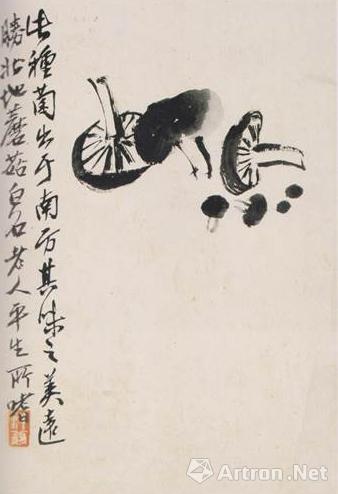 此種菌出于南方其味之美遠
勝北地蘑菇白石老人平生所嗜
Artron.Net